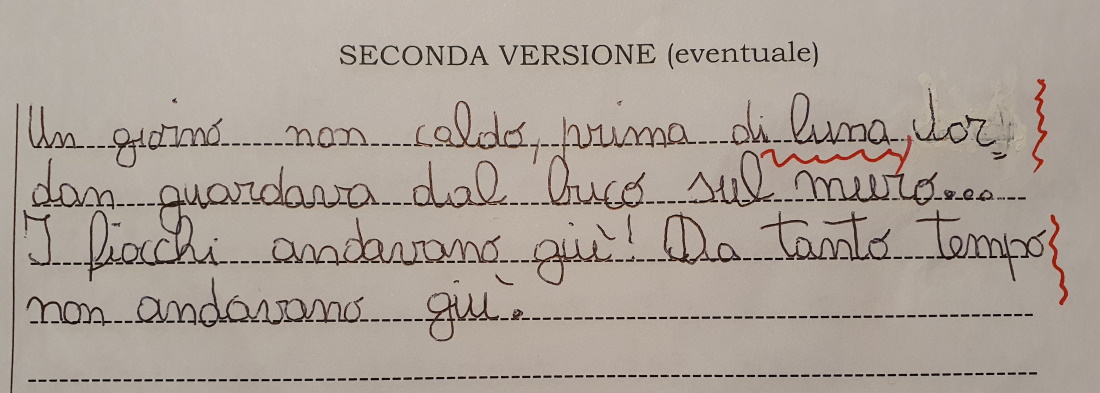 SECONDA VERSIONE (eventuale)
Un giorno non caldo, prima di luna, Jor=
dan guardava dal buco sul muro...
I fiocchi andavano giù! Da tanto tempo
non andavano giù.